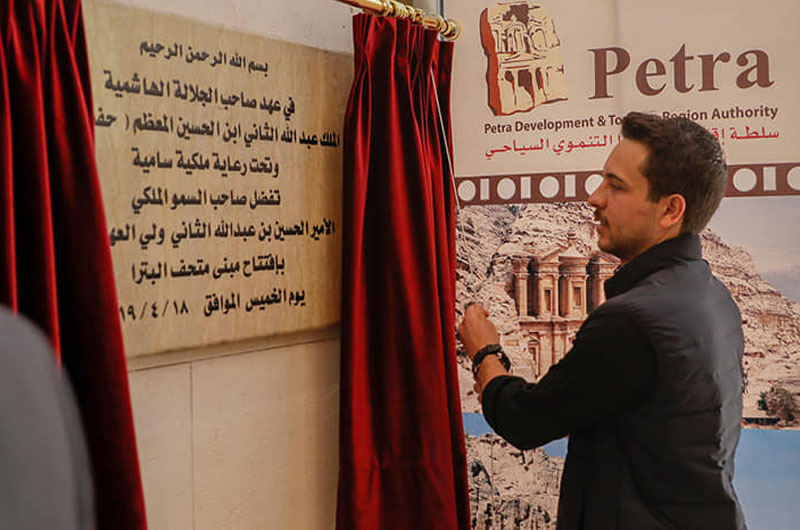 بسم الله الرحمن الرحيم
في عهد صاحب الجلالة الهاشمية
الملك عبد الله الثاني ابن الحسين المعظم ( حف
وتحت رعاية ملكية سامية
تفضل صاحب السمو الملكي
الأمير الحسين بن عبدالله الثاني ولي العه
بإفتتاح مبنى متحف البترا
يوم الخميس الموافق ١٨ / ٤ / ١٩
Petra
Petra Development & Region Authority
سلطة التنموي السياحي